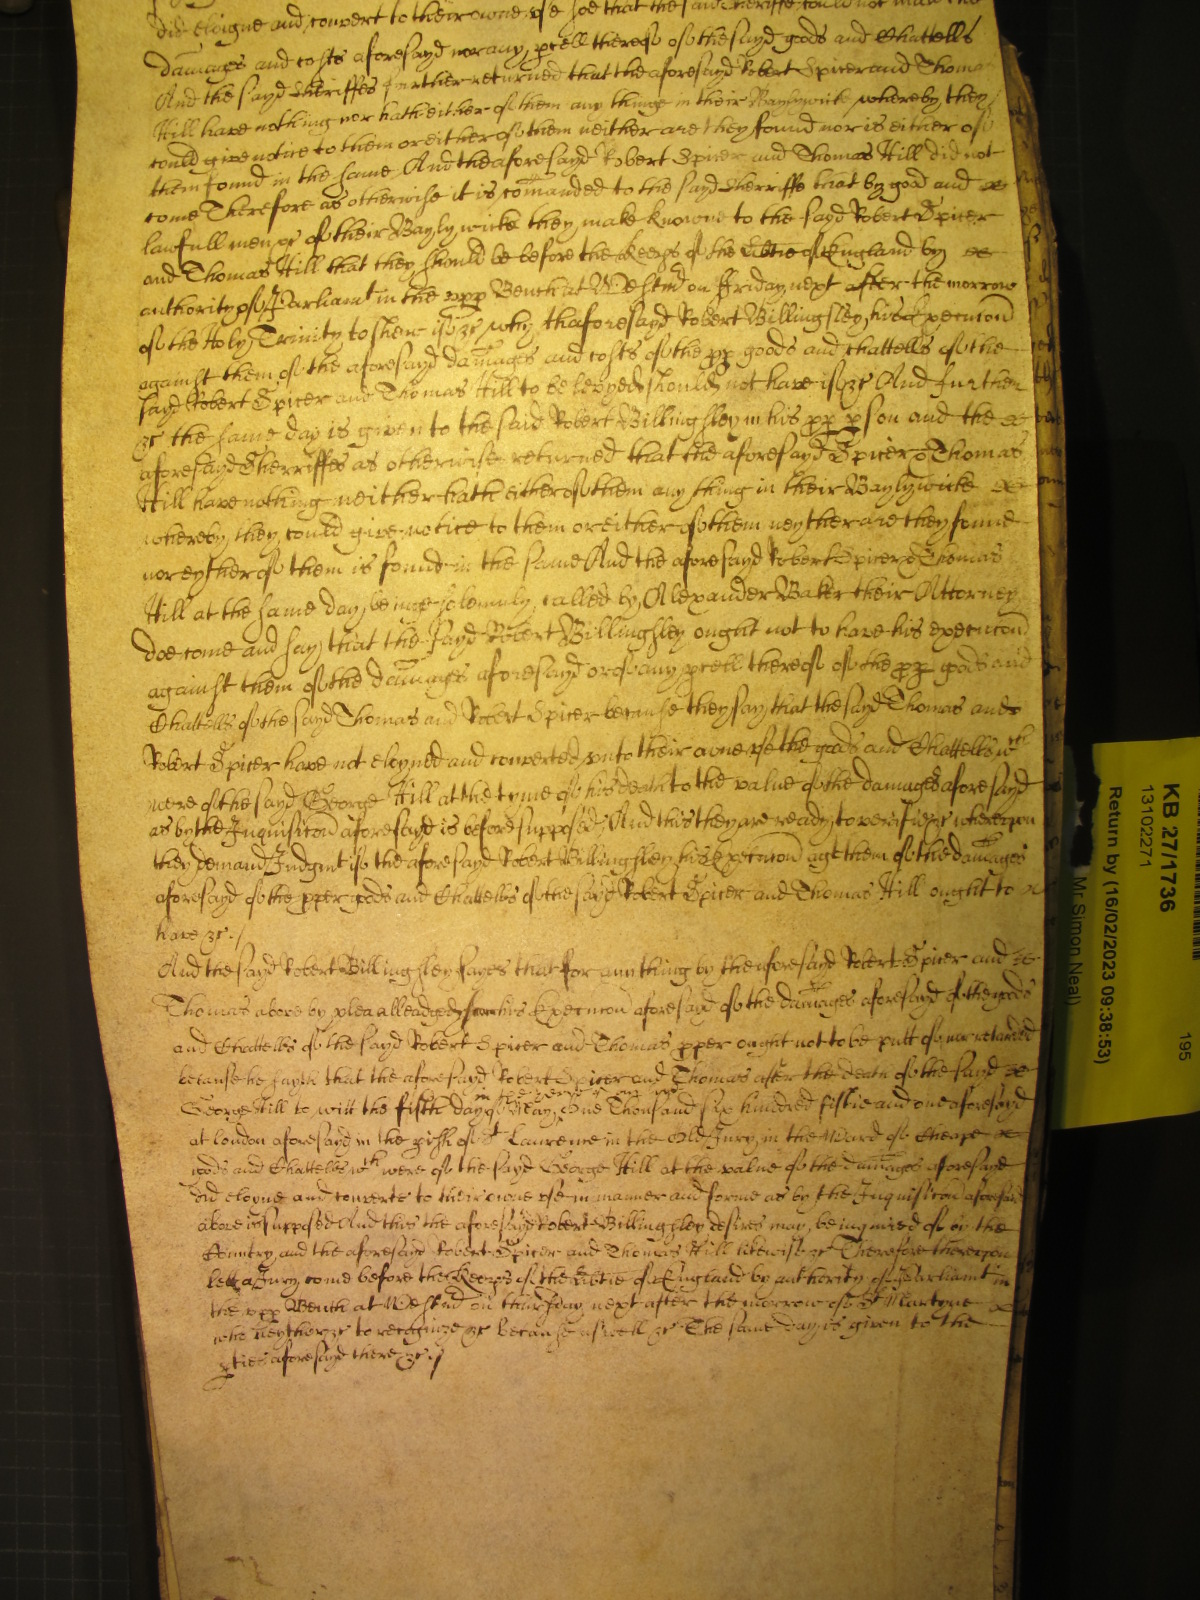 did eloigne and convert to their owne use soe that the said Sheriffe could not make the
damages and costs aforesayd nor any pcell thereof of the sayd goods and Chattells
And the sayd Sheriffes further returned that the aforesayd Robert Spicer and Thomas
Hill have nothing nor hath either of them any thinge in their Baylywicke whereby they
could give notice to them or either of them neither are they found nor is either of
them found in the same And the aforesayd Robert Spicer and Thomas Hill did not
come Therefore as otherwise it is comanded to the sayd Sherriffe that by good and
lawfull men &c of their Baylywicke they make knowne to the sayd Robert Spicer
and Thomas Hill that they should be before the Keeps of the Libtie of England by
authority of Parliamt in the upp Bench at Westm on Friday next after the morrow
of the Holy Trinity to shew if &c why thaforesayd Robert Billingsley his Execucon
against them of the aforesayd damages and costs of the pp goods and chattells of the
sayd Robert Spicer and Thomas Hill to be levyed should not have if &c And further
&c the same day is given to the said Robert Billingsley in his pp pson and the
aforesayd Sherriffes as otherwise returned that the aforesayd Spicer & Thomas
Hill have nothing neither hath either of them any thing in their Baylywicke
whereby they could give notice to them or either of them neyther are they found
nor eyther of them is found in the same And the aforesayd Robert Spicer & Thomas
Hill at the same day being solemnly called by Alexander Baker their Attorney
doe come and say that the sayd Robert Billingsley ought not to have his execucon
against them of the damages aforesayd or of any pcell thereof of the pp goods and
Chattells of the sayd Thomas and Robert Spicer because they say that the sayd Thomas and
Robert Spicer have not eloyned and converted unto their owne use the goods and Chattells wch
were of the sayd George Hill at the tyme of his death to the value of the damages aforesayd
as by the Inquisicon aforesayd is before supposed And this they are ready to verifie &c whereupon
they demand Judgmt if the aforesayd Robert Billingsley his Execucon agt them of the damages
aforesayd of the pper goods and Chattells of the sayd Robert Spicer and Thomas Hill ought to
have &c./
And the sayd Robert Billingsley sayes that for any thing by the aforesayd Robert Spicer and
Thomas above by plea alleadged from his Execucon aforesayd of the damages aforesayd of the goods
and Chattells of the sayd Robert Spicer and Thomas pper ought not to be putt of nor retarded
because he sayth that the aforesayd Robert Spicer and Thomas after the death of the sayd
George Hill to witt the fifth day of May in the yeare of our Lord One Thousand six hundred fiftie and one aforesayd
at London aforesayd in the pish of St Laurence in the Old Jury in the Ward of Cheape
gods and Chattells wch were of the sayd George Hill at the value of the damages aforesayd
did eloyne and converte to their owne use in manner and forme as by the Inquisicon aforesaid
above is supposed And this the aforesayd Robert Billingsley desires may be inquired of by the
Country and the aforesayd Robert Spicer and Thomas Hill likewise &c Therefore thereupon
lett a Jury come before the Keeps of the Libtie of England by authority of Parliamt in
the upp Bench at Westm on thursday next after the morrow of St Martyne
who neyther &c to recognize &c because aswell &c The same day is given to the
pties aforesayd there &c./
KB 27/1736
13102271
Return by (16/02/2023 09:38:53)
Mr Simon Neal)
195